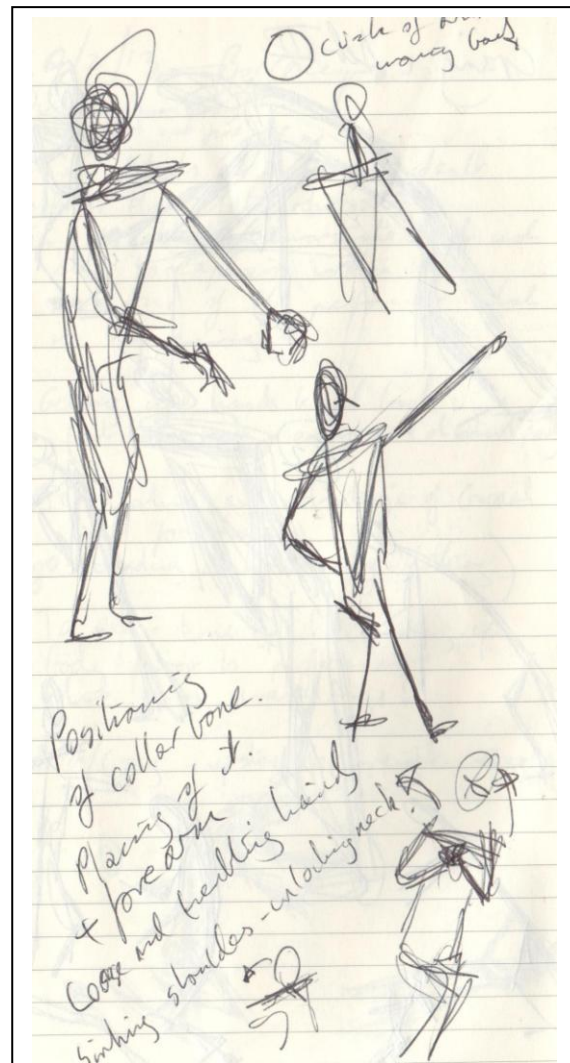 of
Positioning
of collar bone.
Placing of it.
+ forearm
Loose and trembling hands
Sinking shoulders - unlocking neck.